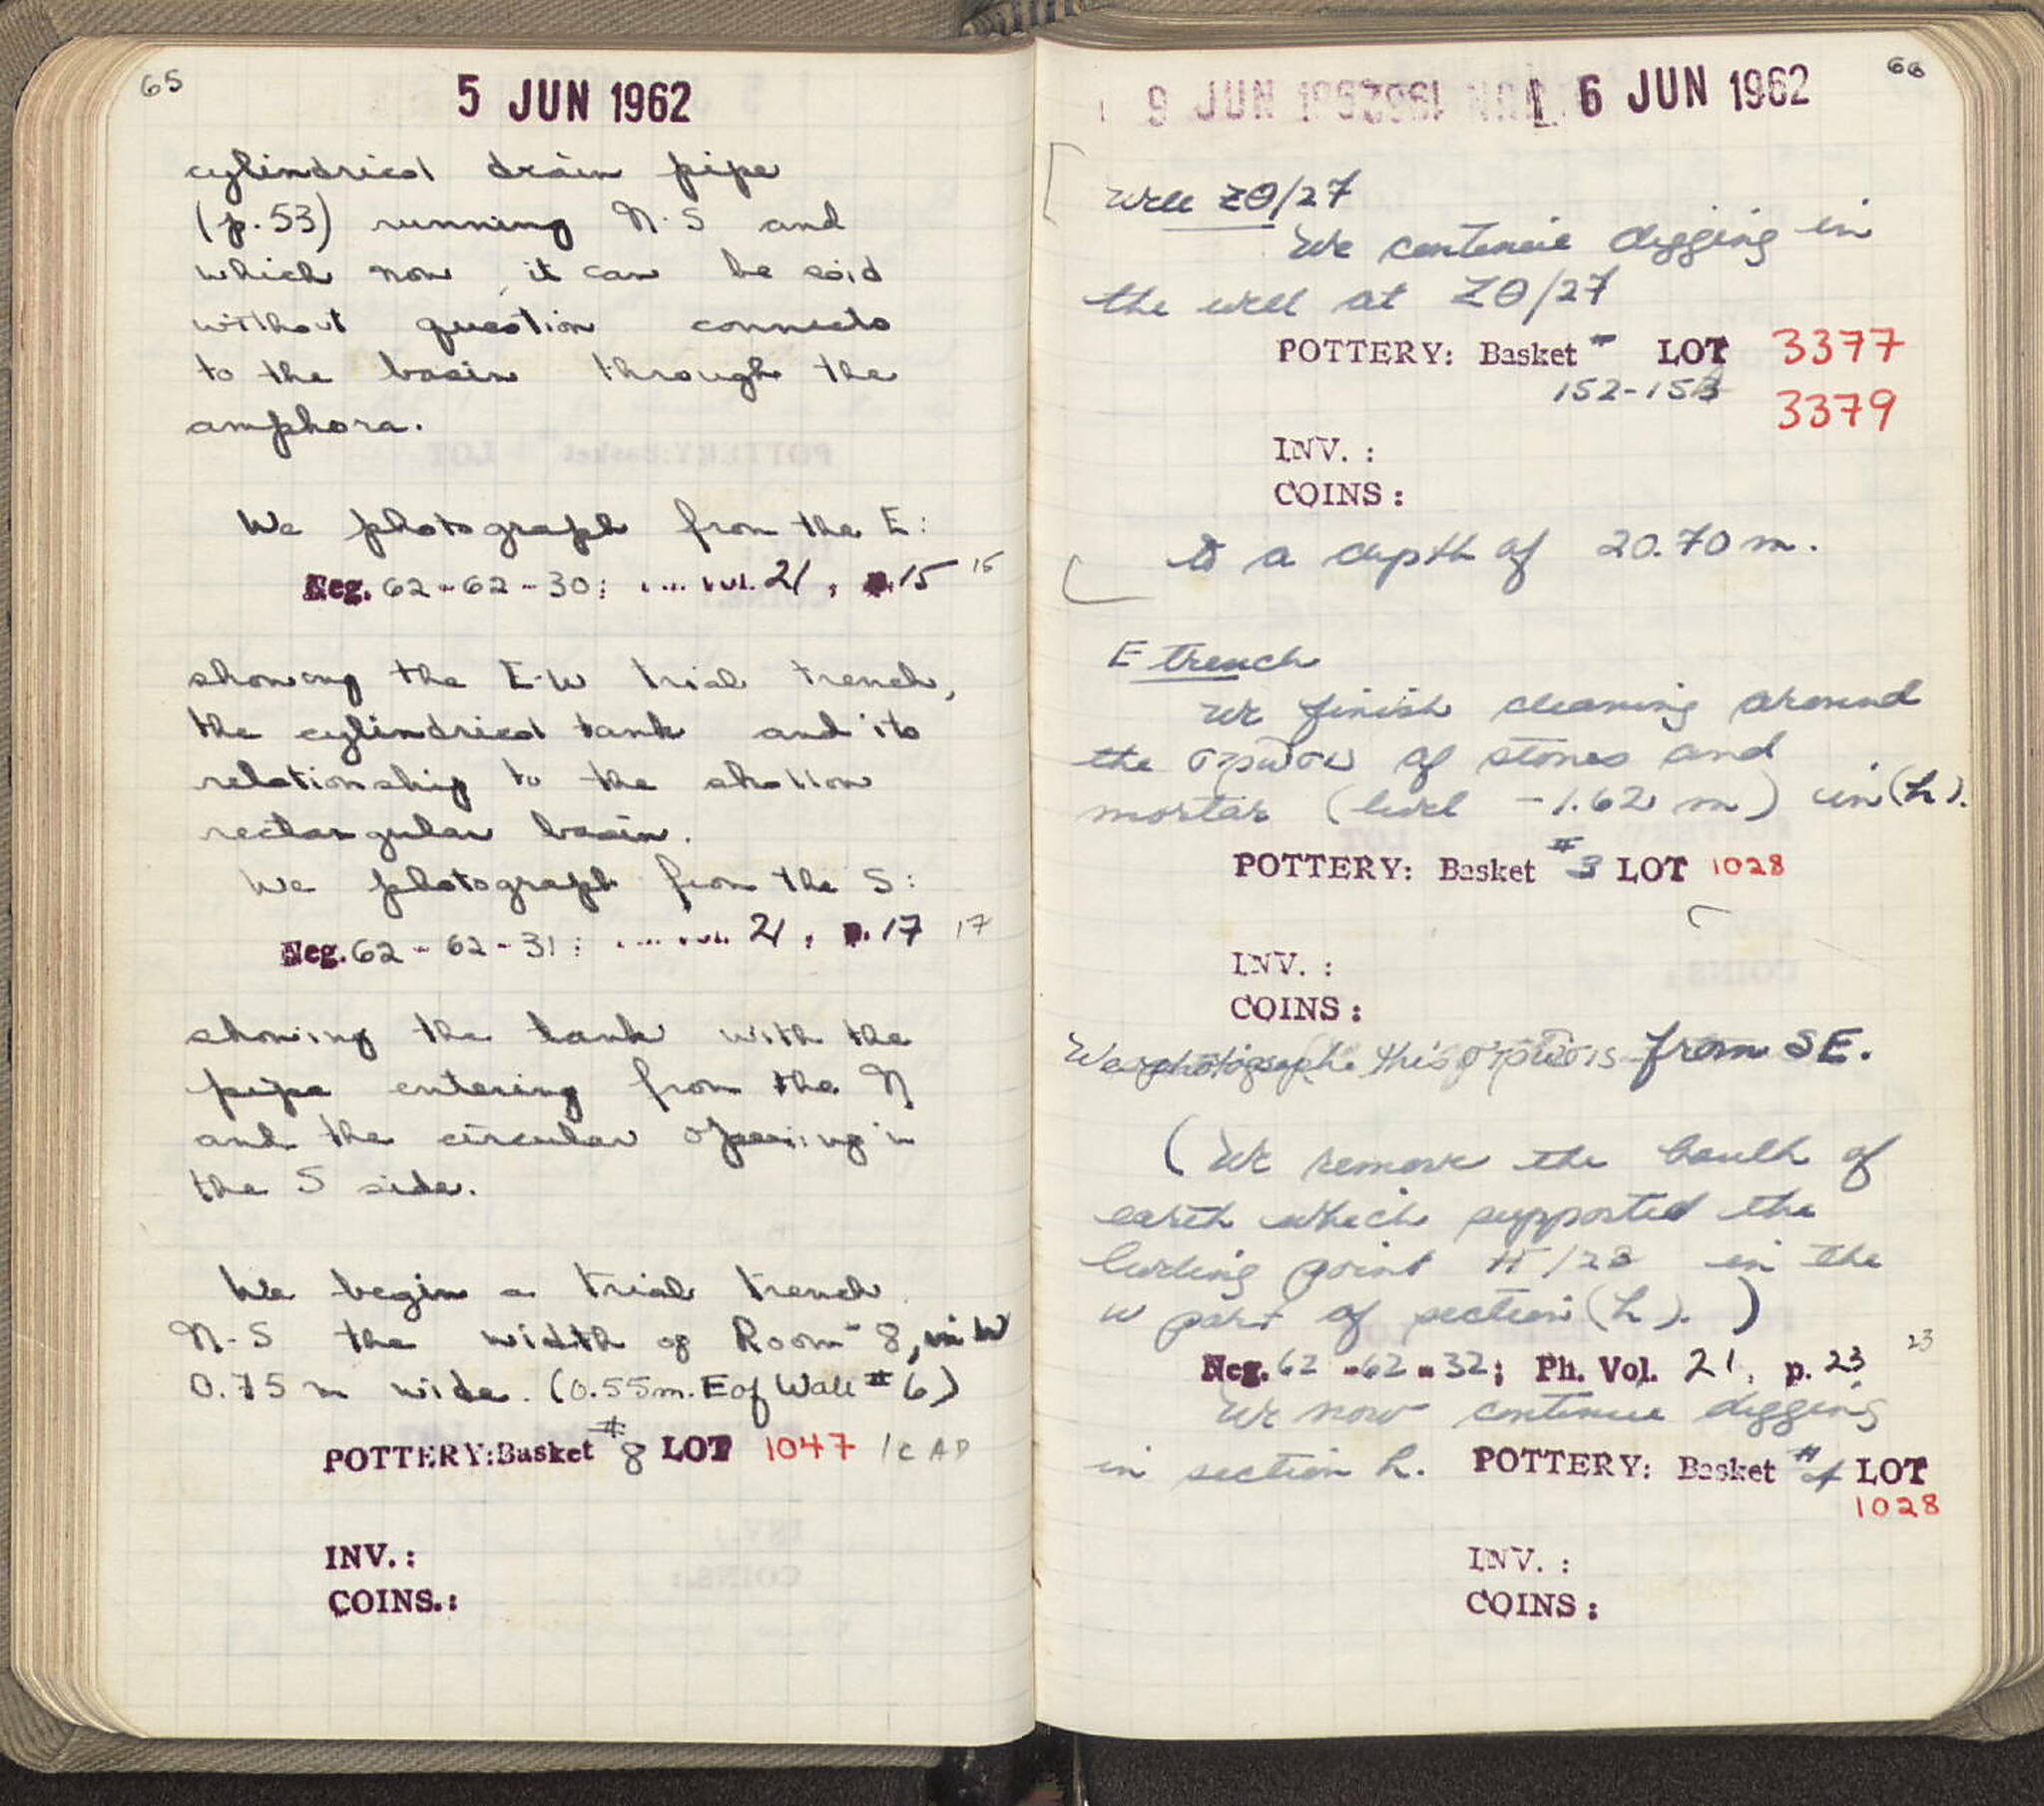 65
5 JUN 1962
cylindrical drain pipe
(p.53) running N-S and
which now, it can be said
without question connects
to the basin through the
amphora.
We photograph from the E:
Neg. 62-62-30; vol. 21, p.15 15
showing the E-W trial trench,
the cylindrical tank and its
relationship to the shallow
rectangular basin.
We photograph from the S:
Neg. 62-62-31; vol. 21, p.17 17
showing the tank with the
pipe entering from the N
and the circular opening in
the S side.
We begin a trial trench
N-S the width of Room 8, in W
0.75 m wide. (0.55m. E of Wall #6)
POTTERY: Basket #8 LOT 1047 1c AD
INV.:
COINS.:
66
9 JUN 1962 6 JUN 1962
Well ZΘ/27
We continue digging in
the well at ZΘ/27
POTTERY: Basket # LOT 3377
152-153 3379
INV. :
COINS :
to a depth of 20.70 m.
E trench
We finish cleaning around
the στρῶσις of stones and
mortar (level -1.62 m) in (h).
POTTERY: Basket #3 LOT 1028
INV. :
COINS :
We photograph this στρῶσις from SE.
(We remove the baulk of
earth which supported the
binding point H/28 in the
W part of section (h). )
Neg. 62-62-32; Ph. Vol. 21, p. 23 23
We now continue digging
in section h. POTTERY: Basket #4 LOT
1028
INV. :
COINS :